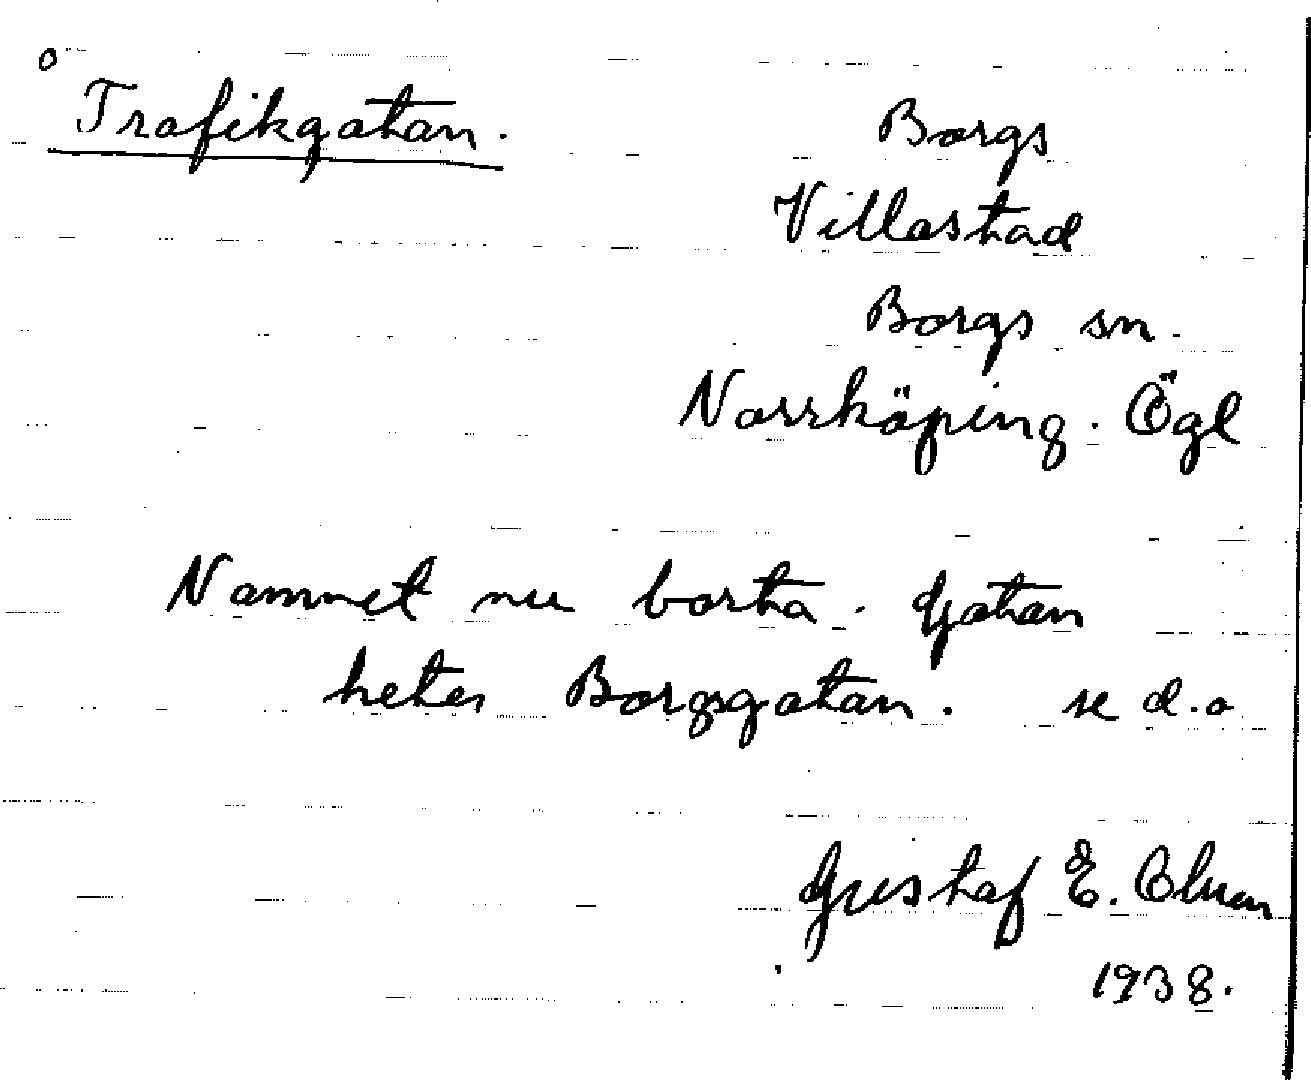 o
Trafikgatan.
Borgs
Villastad
Borgs sn.
Norrköping. Ögl
Namnet nu borta. Gatan
heter Borgsgatan. se d.o
Gustaf E.
1938.